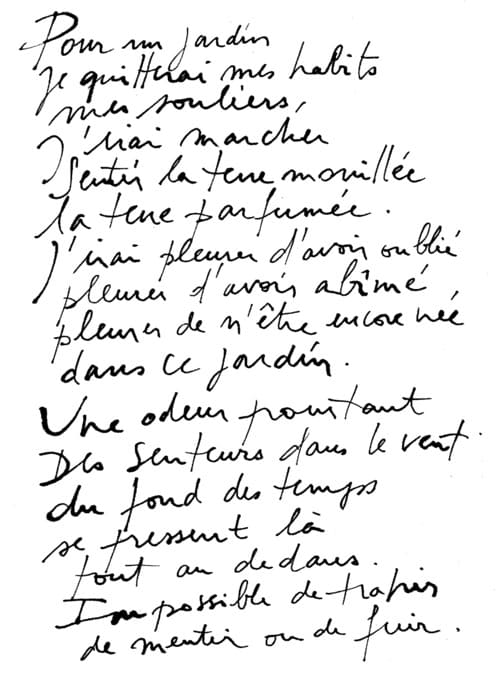 Pour un jardin
Je quitterai mes habits
mes souliers,
J'irai marcher
Sentir la terre mouillée
la terre parfumée.
J'irai pleurer d'avoir oublié
pleurer d'avoir abîmé,
pleurer de n'être encore née
dans ce jardin.
Une odeur pourtant
Des senteurs dans le vent
du fond des temps
se pressent là
tout au dedans.
Impossible de trahir
de mentir ou de fuir.